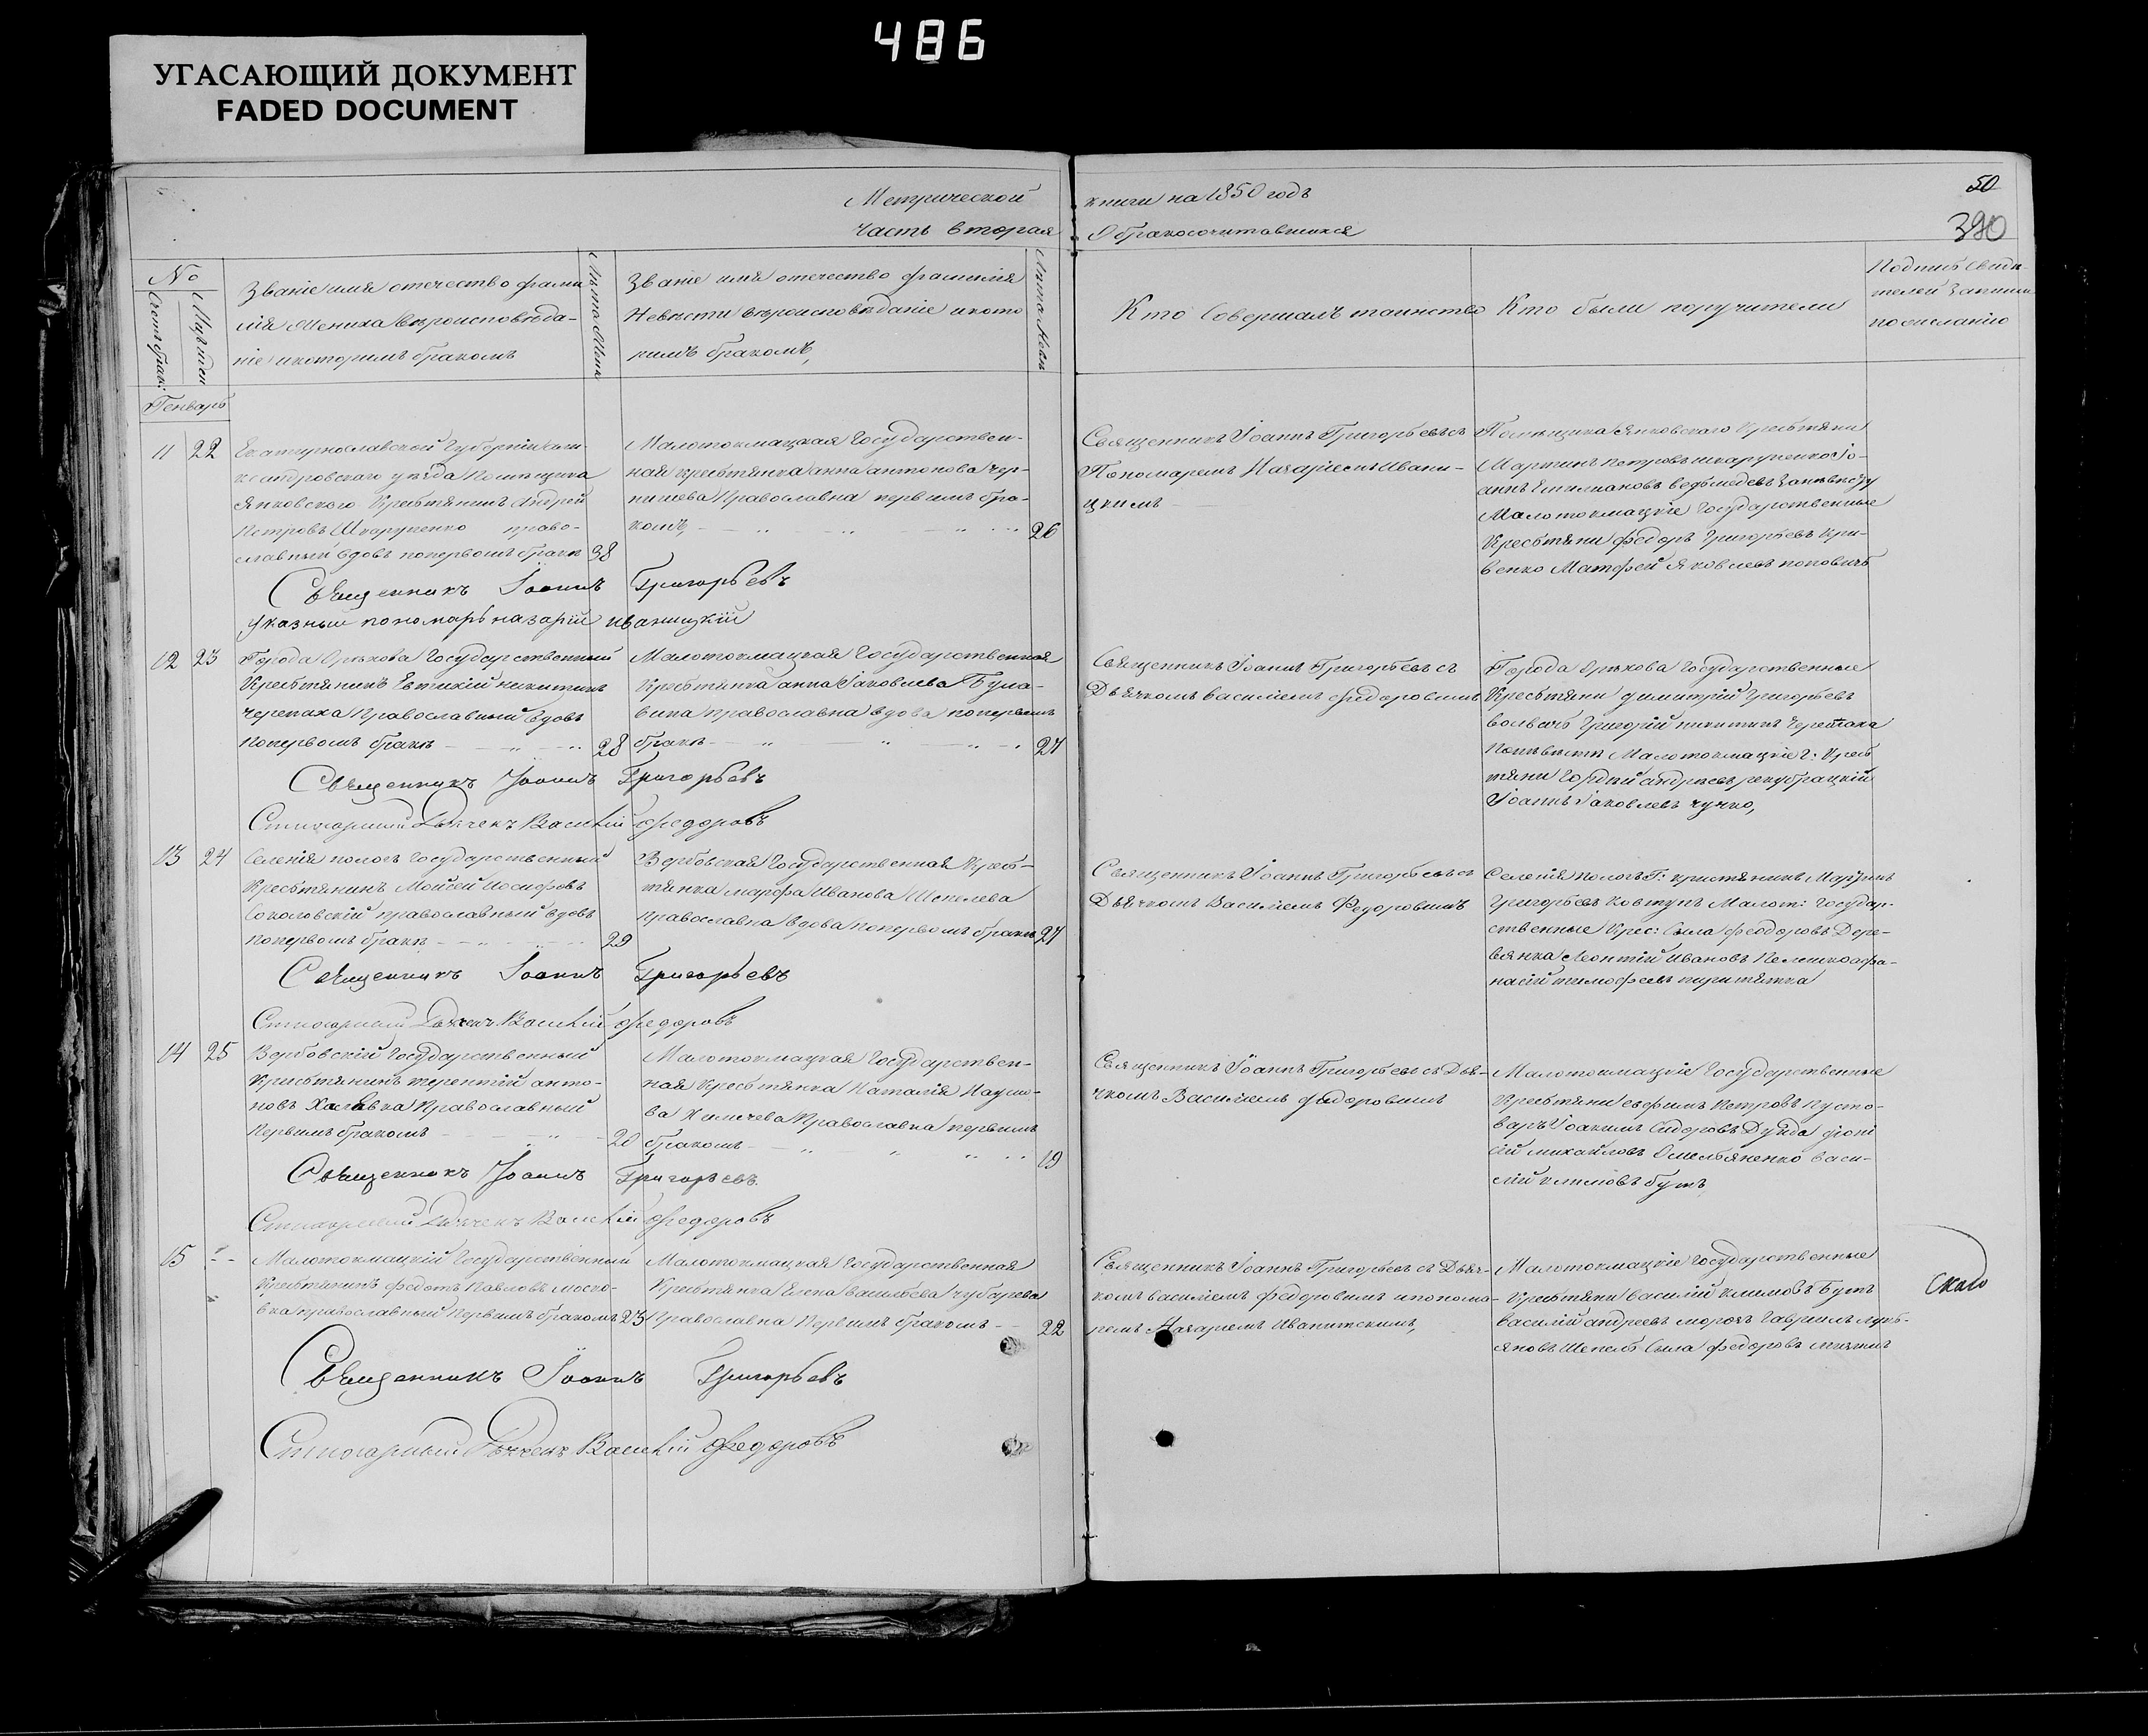 486
УГАСАЮЩИЙ ДОКУМЕНТ
FADED DOCUMENT
50
390
Метрической
книги на 1850 годъ
Часть вторая
О бракосочитавшихся
№
Счетъ брак:
Званіе имя отечество фами
лія Жениха вѣроисповѣда-
ніе и которимъ бракомъ
Лѣта Жених
Званіе имя отечество фамилія
Невѣсти вѣроисповѣданіе и кото
римъ бракомъ,
Лѣта Невѣ
Кто Совершалъ таинство
Кто были поручители
Подпись Свидѣ-
телей Записи
по желанію
Генварь
11 22
Екатеринославской Губерніи Алек-
ксандровского уѣзда Помѣщика
Янковского Крестянинъ Андрей
Петровъ Шкарупенко право-
славный вдовъ поперво­мъ бракѣ 38
Малотокмацкая Государствен-
ная крестянка анна антонова Чер-
нишева Православна первимъ бра-
комъ, 26
Священникъ Іоаннъ Григорьевъ съ
Пономаремъ Назаріемъ Ивани-
цкимъ
Помѣщика Янковского Крестяни
Мартинъ Петровъ шкарупенко Іо-
аннъ Емилиановъ ведьмедевъ
Малотокмацкіе Государственные
Крестяни Федоръ Григорьевъ Кри-
венко Матфей Яковлевъ поповичь
Священникъ Іоаннъ Григорьевъ
Указный пономарь назарій иваницкій
12 23
Города Орѣхова Государственный
Крестянинъ Евтихій никитинъ
черепаха Православный вдовъ
поперво­мъ бракѣ 28
Малотокмацкая Государственная
Крестянка анна Іаковлева Була-
вина православна вдова по первимъ
бракѣ 27
Священникъ Іоаннъ Григорьевъ съ
Дьячкомъ василіемъ Федоровимъ
Города Орѣхова Государственные
Крестяни димитрій Григорьевъ
Григорій никитинъ Черепаха
По невѣсти Малотокмацкіе Г: Крес
тяни Гордій андреевъ
Іоаннъ Іаковлевъ чучко,
Священникъ Іоаннъ Григорьевъ
Стихарный Дьячекъ Василій Федоровъ
13 24
Селенія пологъ Государственный
Крестянинъ Мойсей Иосифовъ
Соколовскій православный вдовъ
поперво­мъ бракѣ 29
Вербовская Государственная Крес-
тянка марфа Иванова Шепелева
Православна вдова поперво­мъ бракѣ 27
Священникъ Іоаннъ Григорьевъ съ
Дьячкомъ Василіемъ Федоровимъ
Селенія пологъ Г: кристянинъ
Григорьевъ Ковтунъ Малот: Государ-
ственные Крес: Сила феодоровъ Дере-
вянка Леонтій Ивановъ афа-
насій тимофеевъ
Священникъ Іоаннъ Григорьевъ
Стихарный Дьячекъ Василій Федоровъ
14 25
Вербовскій Государственный
Кристянинъ терентій анто-
новъ Халявка Православный
Первимъ бракомъ 20
Малотокмацкая Государствен-
ная Крестянка Наталія Наумо-
ва Православна первимъ
бракомъ 19
Священникъ Іоаннъ Григорьевъ съ Дья-
чкомъ Василіемъ федоровимъ
Малотокмацкіе Государственные
Крестяни ефимъ Петровъ Пусто-
варъ Іоакимъ Сидоровъ Діони
сій михайловъ Омельяненко васи-
лій климовъ бутъ
Священникъ Іоаннъ Григорьевъ
Стихарный Дьячекъ Василій Федоровъ
15
Малотокмацкій Государственный
Крестянинъ федотъ Павловъ моско-
вка православный Первимъ бракомъ 23
Малотокмацкая Государственная
Крестянка Елена васильева чубарева
Православна Первимъ бракомъ 22
Священникъ Іоаннъ Григорьевъ съ Дьяч-
комъ василіемъ Федоровимъ и понома-
ремъ Назаріемъ Иваницкимъ,
Малотокмацкіе Государственные
Крестяни василій климовъ Бутъ
василій андреевъ морозъ Гавриилъ Лукь-
яновъ Шепель Сила федоровъ
Священникъ Іоаннъ Григорьевъ
Стихарный Дьячекъ Василій Федоровъ